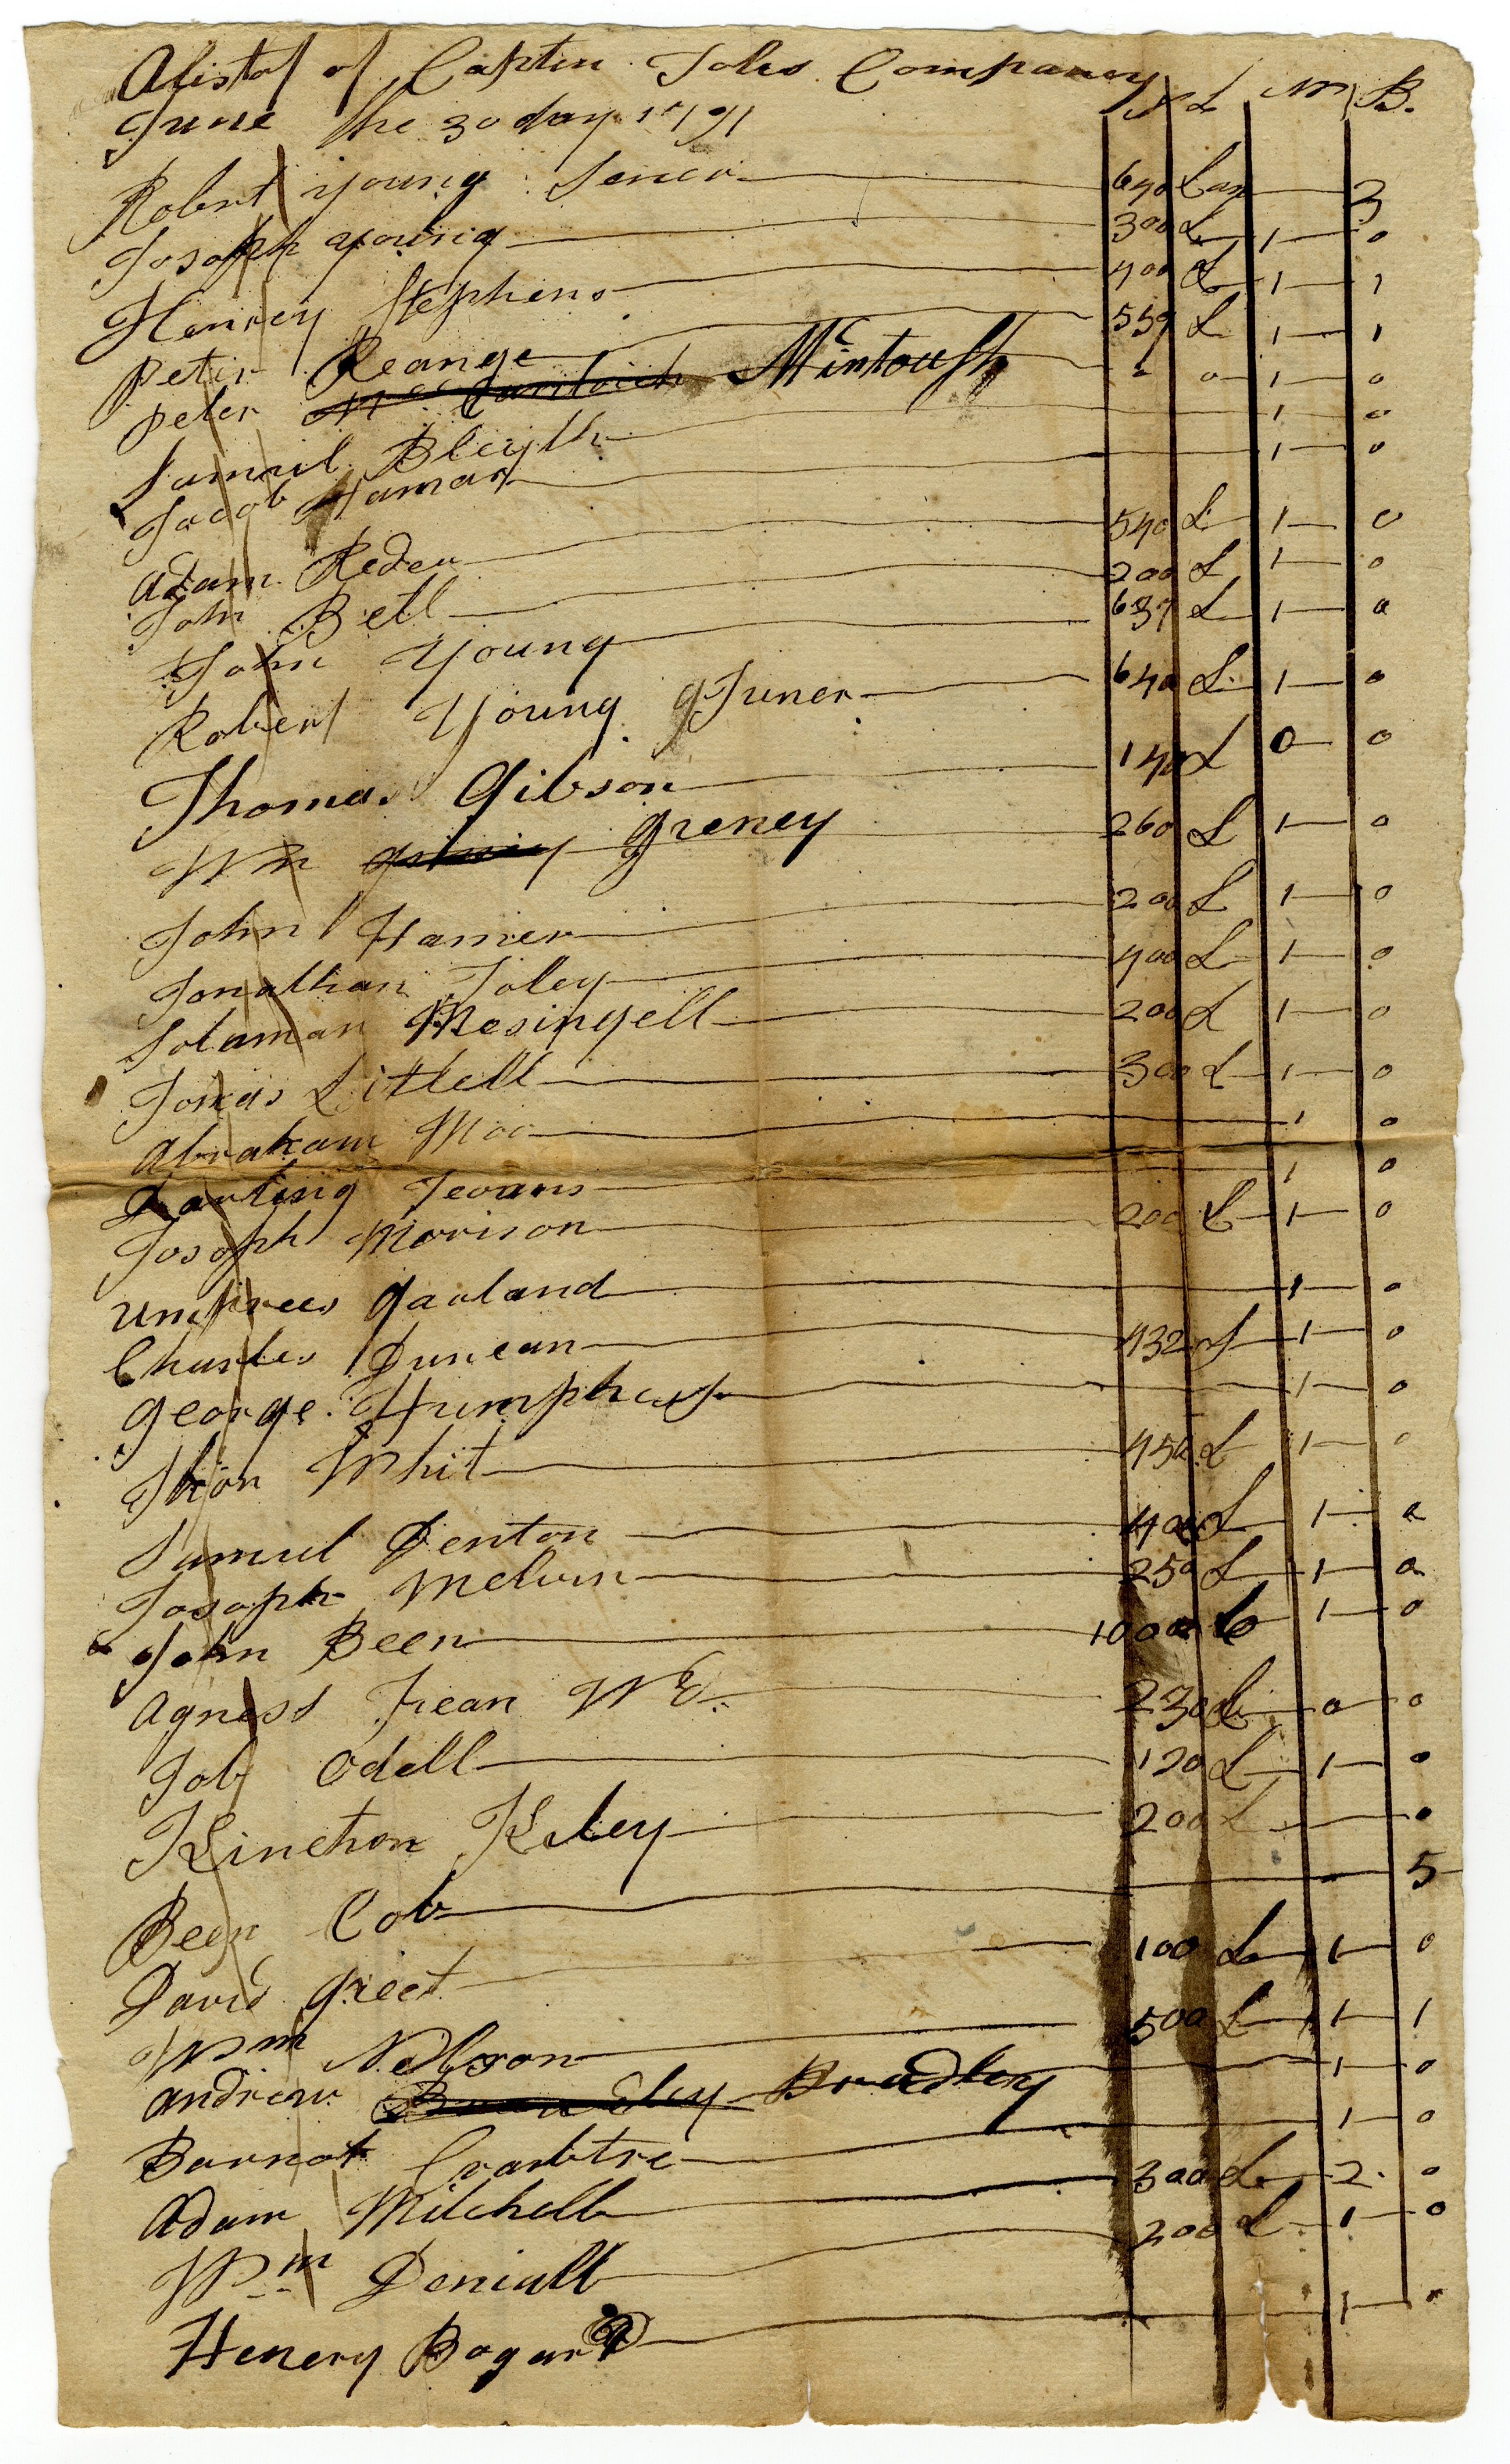 Alist of of Captin Joles Company L M B.
June the 30 day 1791
Robert young Sener 640 Lan 3
Josaph young 300 L 1 0
Henrey Stephens 400 L 1 1
Petir Reange 559 L 1 1
peter Mcintoush 0 0 1 0
Samuil Bleyth 1 0
Jacob Hamar 1 0
Adam Reder 540 L 1 0
John Bell 200 L 1 0
John Young 637 L 1 0
Robert Young Juner 640 L 1 0
Thomas Gibson 140 L 0 0
Wm greney 260 L 1 0
John Hamer 200 L 1 0
Jonathan Joley 400 L 1 0
Solaman Mesingell 200 L 1 0
Jonas Littell 300 L 1 0
Abraham Moo 1 0
Darling Jevans 1 0
Josaph Morison 200 L 1 0
Umphrees Garland 1 0
Charles Duncan 432 L 1 0
George Humphrey 1 0
Jhon Whit 450 L 1 0
Samuel Denton 400 L 1 0
Josaph Melvin 250 L 1 0
John Been 1000 L 1 0
Agness Frean Wd. 230 L 0 0
Job Odell 120 L 1 0
Kinchon Keley 200 L 0
Been Cob 5
David greet 100 L 1 0
Wm Nelson 500 L 1 1
Andrew Bradley 1 0
Barnat Crabtre 1 0
Adam Mitchell 300 L 2 0
Wm Deniall 200 L 1 0
Henery Bogard 1 0